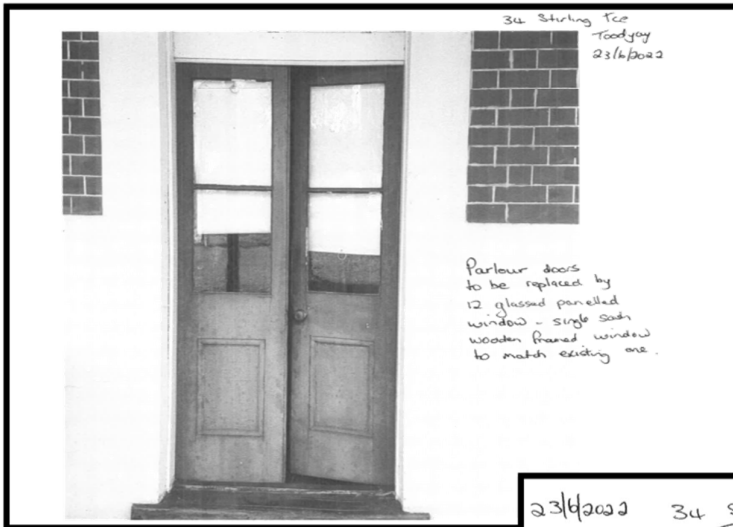 34 Stirling Tce
Toodyay
23/6/2022
Parlour doors
to be replaced by
12 glassed panelled
window - single sash
wooden framed window
to match existing one.
23/6/2022 34 S